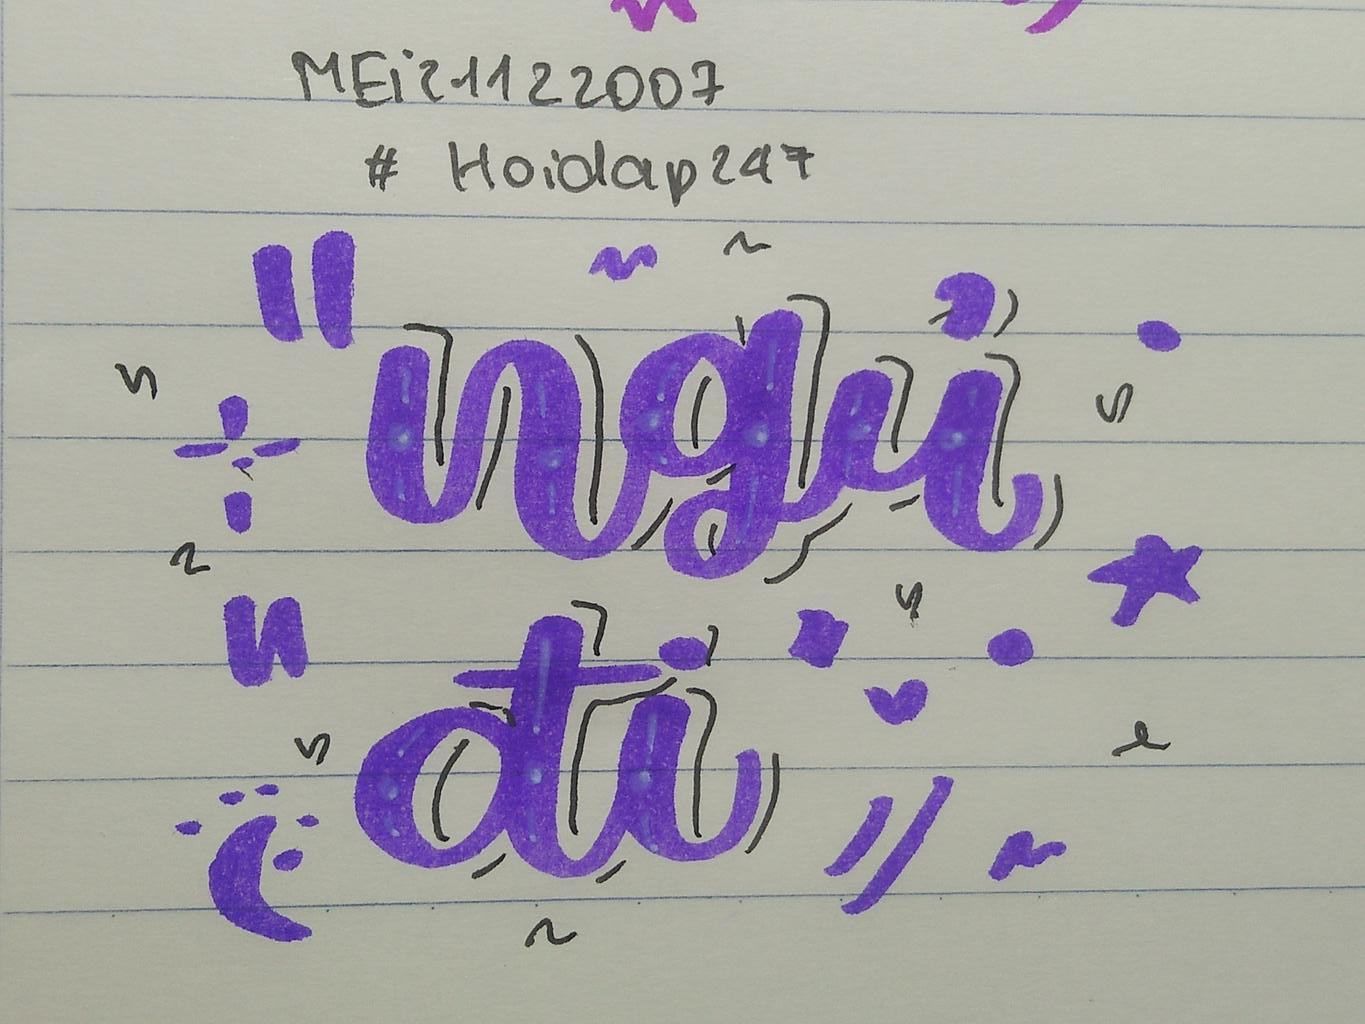 MEi21122007
# Hoidap247
"ngủ
đi"